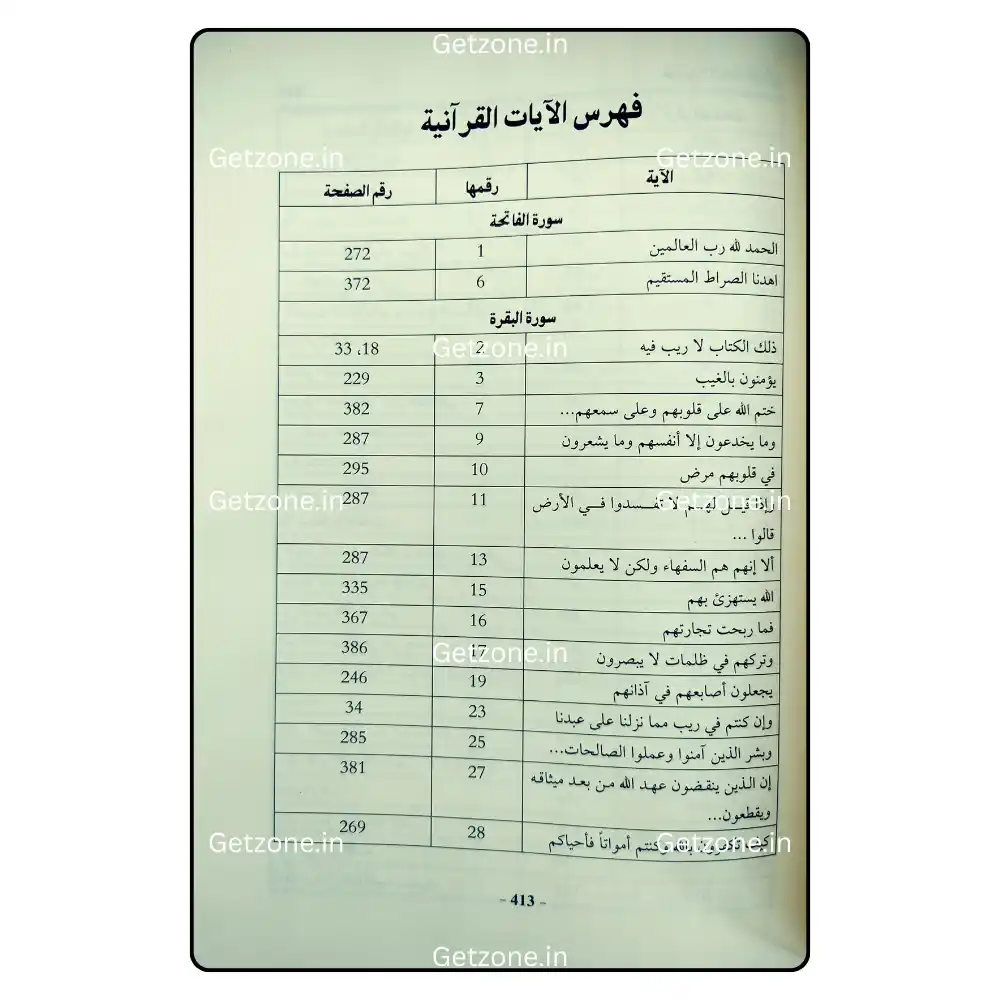 Getzone.in
فهرس الآيات القرآنية
Getzone.in Getzone.in
الآية رقمها رقم الصفحة
سورة الفاتحة
الحمد لله رب العالمين 1 272
اهدنا الصراط المستقيم 6 372
سورة البقرة
ذلك الكتاب لا ريب فيه 2 18، 33
Getzone.in
يؤمنون بالغيب 3 229
ختم الله على قلوبهم وعلى سمعهم... 7 382
وما يخدعون إلا أنفسهم وما يشعرون 9 287
في قلوبهم مرض 10 295
وإذا قيل لهم لا تفسدوا في الأرض 11 287
Getzone.in Getzone.in
قالوا ...
ألا إنهم هم السفهاء ولكن لا يعلمون 13 287
الله يستهزئ بهم 15 335
فما ربحت تجارتهم 16 367
وتركهم في ظلمات لا يبصرون 17 386
Getzone.in
يجعلون أصابعهم في آذانهم 19 246
وإن كنتم في ريب مما نزلنا على عبدنا 23 34
وبشر الذين آمنوا وعملوا الصالحات... 25 285
إن الذين ينقضون عهد الله من بعد ميثاقه 27 381
ويقطعون...
كيف تكفرون بالله وكنتم أمواتاً فأحياكم 28 269
Getzone.in Getzone.in
- 413 -
Getzone.in